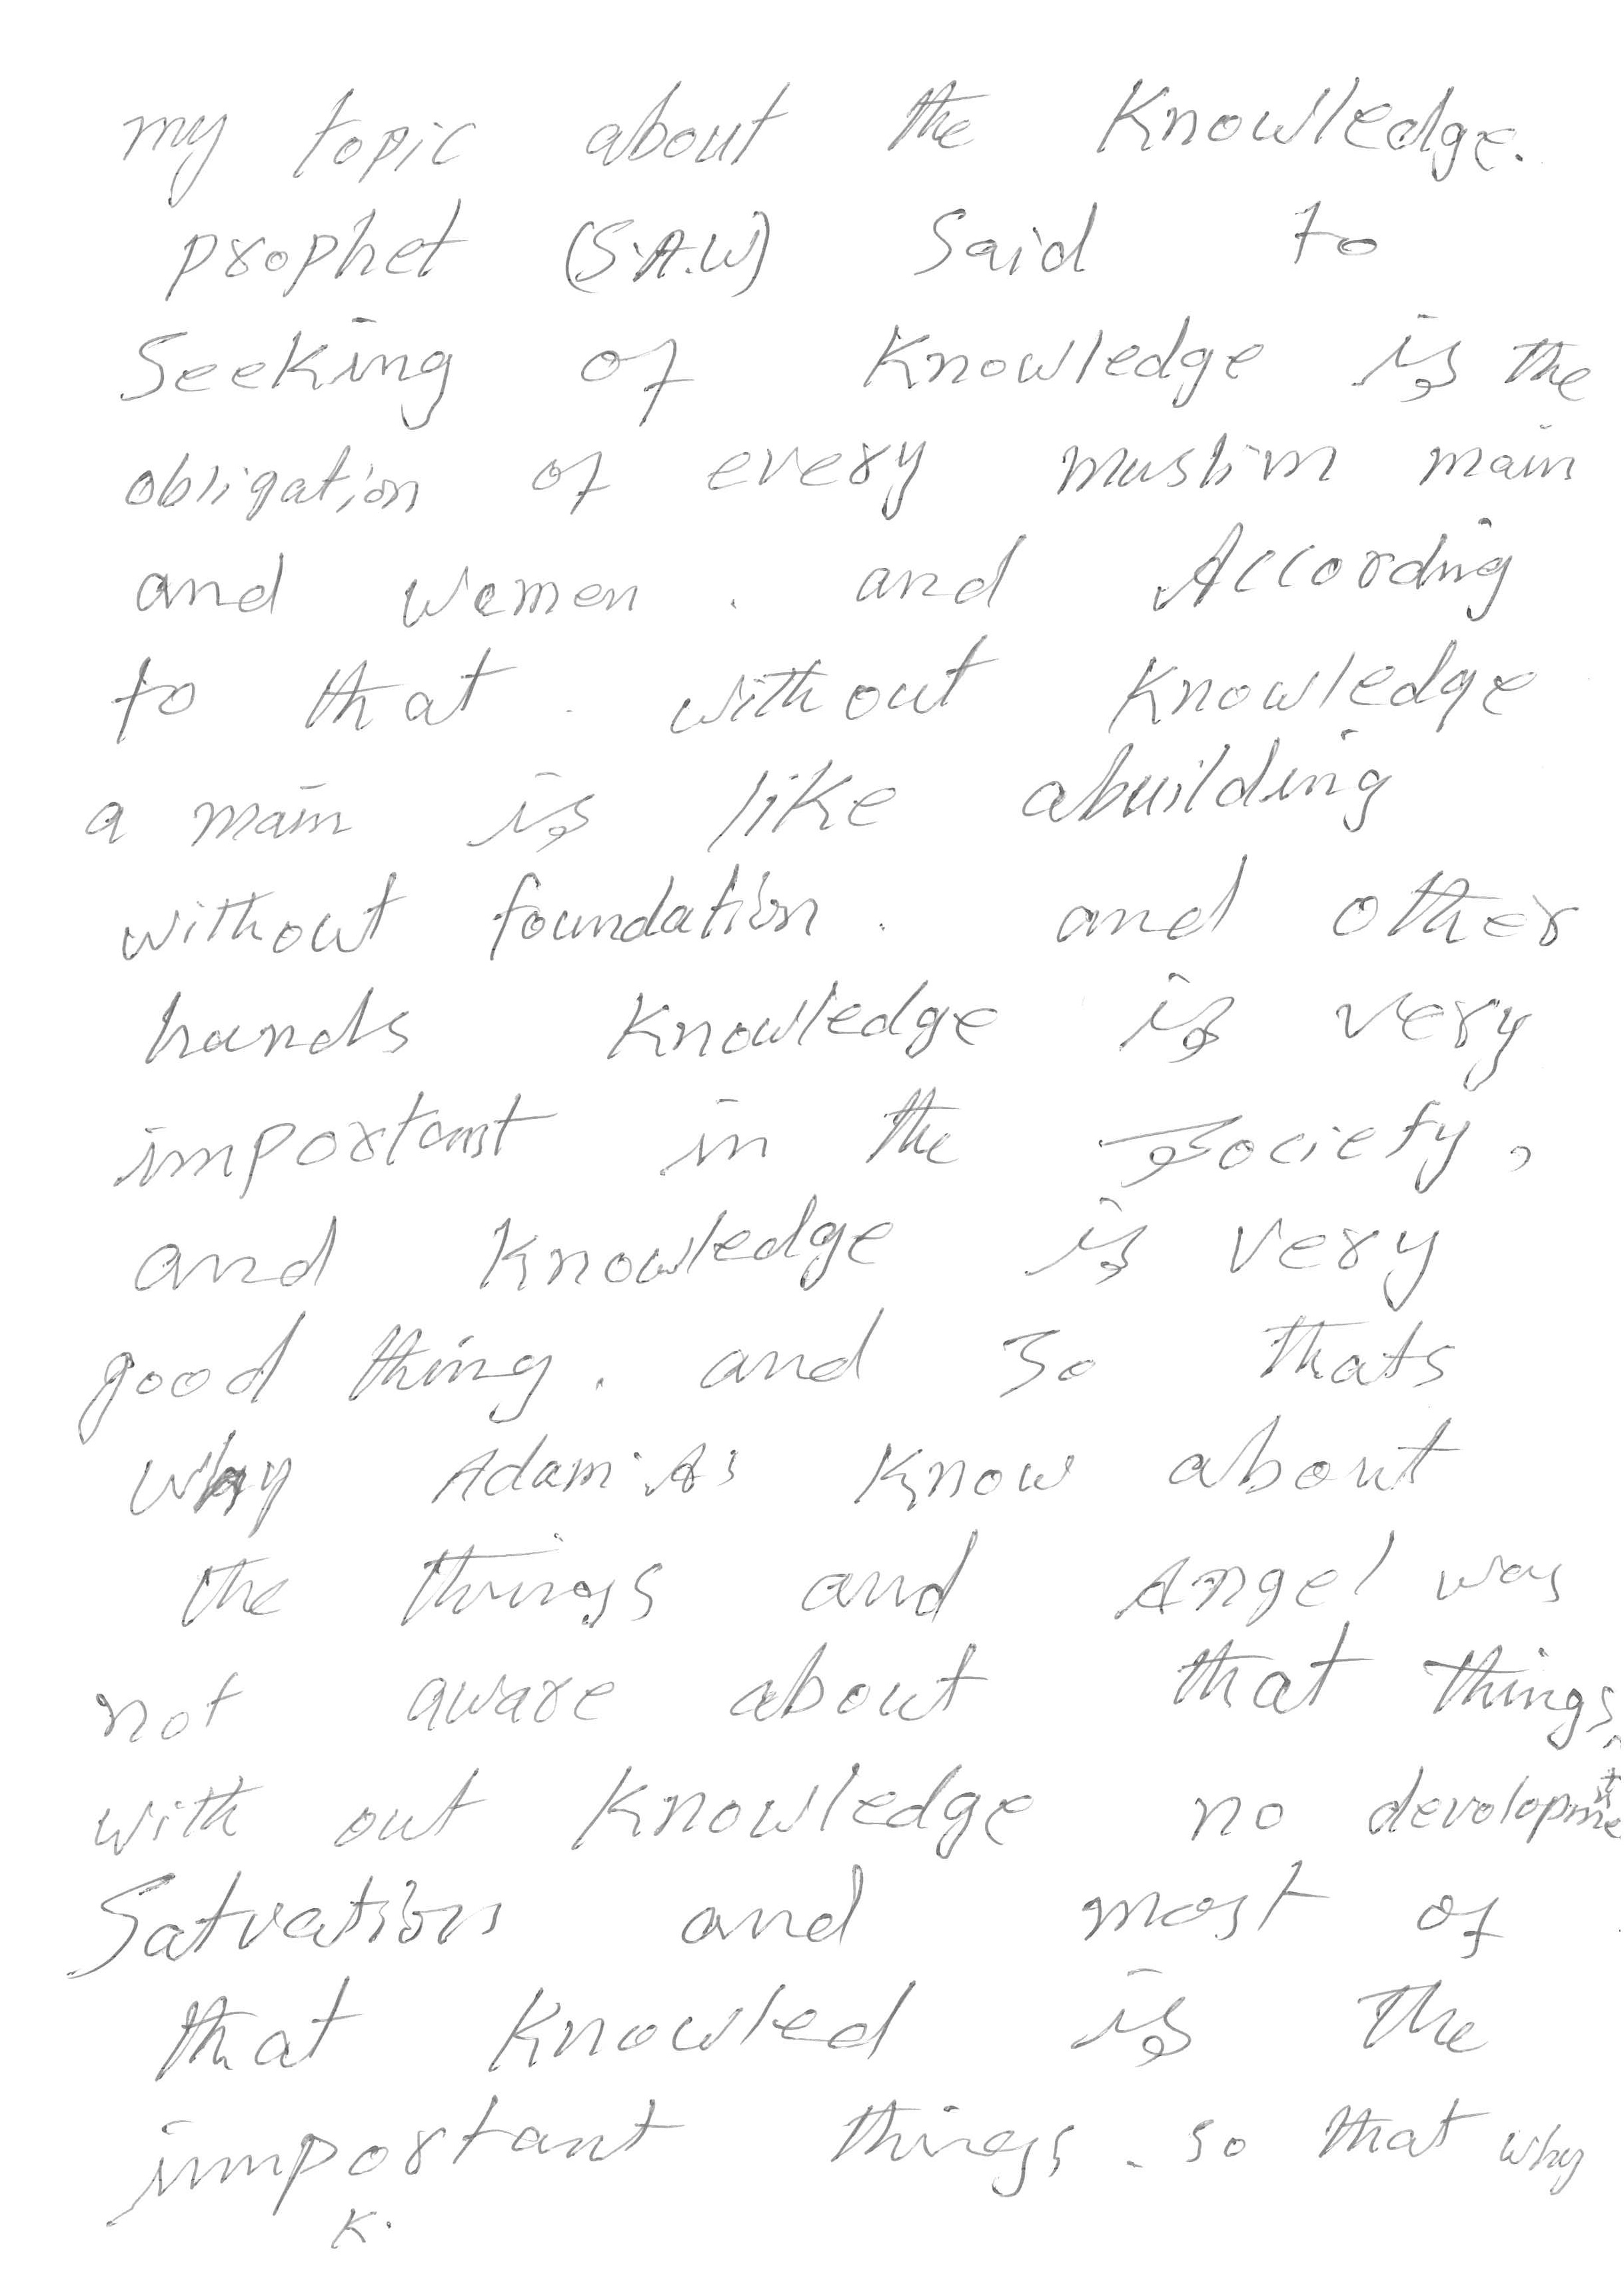 my topic about the Knowledge.
prophet (S.A.W) Said to
Seeking of Knowledge is the
obligation of every muslim main
and women . and According
to that . without Knowledge
a main is like abuilding
without foundation . and other
hands Knowledge is very
important in the Society,
and Knowledge is very
good thing . and So thats
why Adam As Know about
the things and Angel was
not aware about that things,
with out Knowledge no devolopment
Satvation and most of
that Knowled is the
important things . so that why
K.